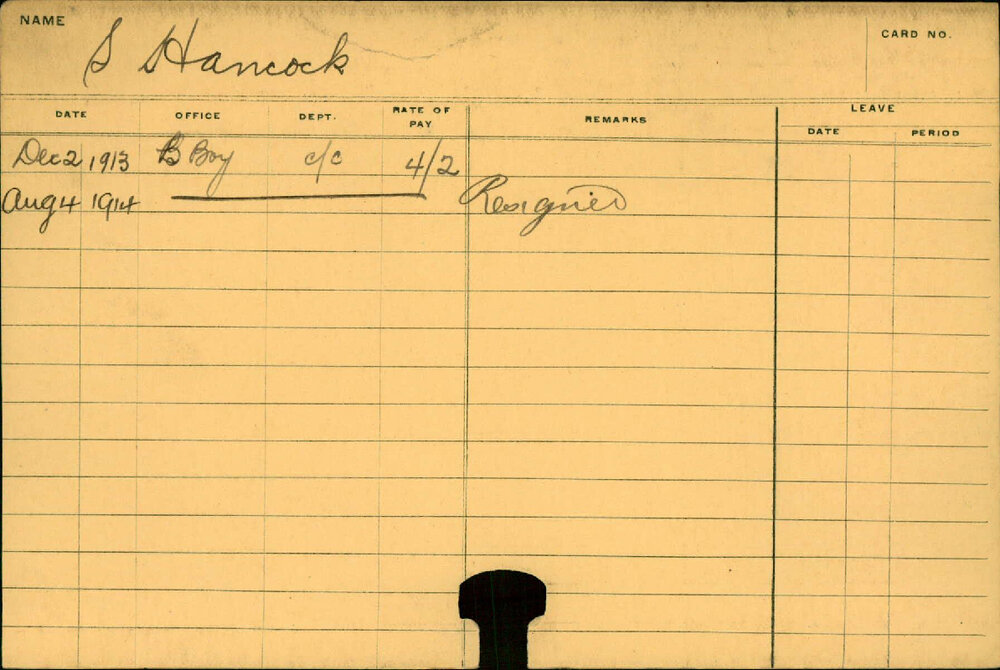 NAME S Hancock CARD NO.
DATE OFFICE DEPT. RATE OF PAY REMARKS LEAVE
DATE PERIOD
Dec 2 1913 B Boy c/c 4/2
Aug 4 1914 Resigned